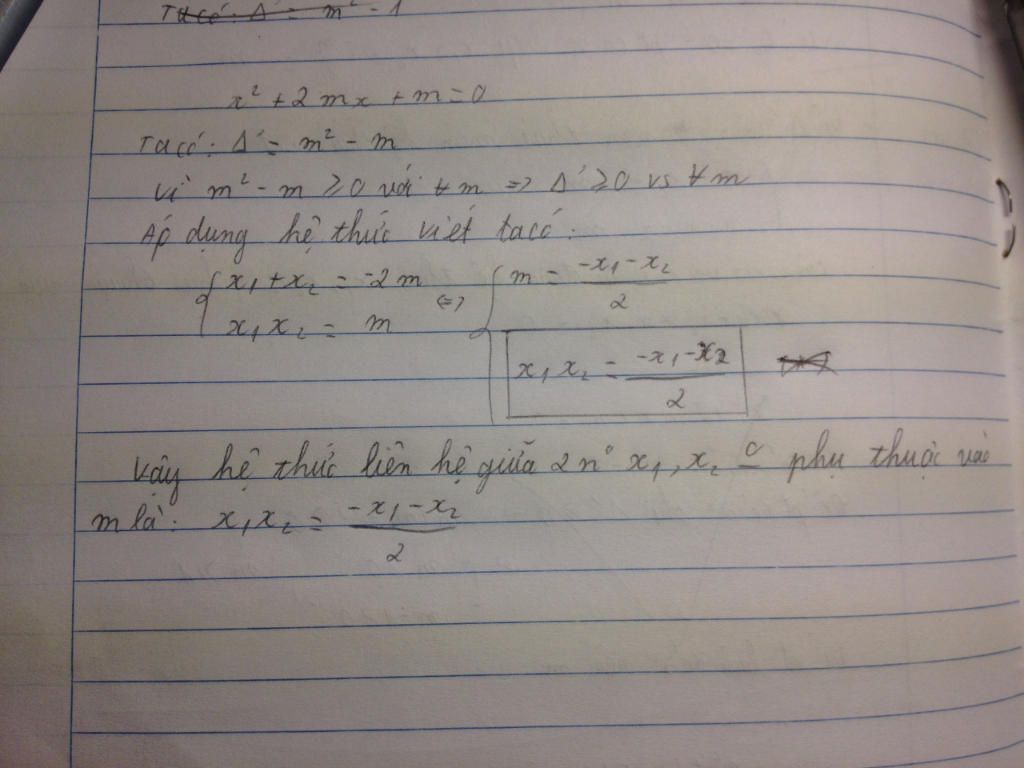 Ta có: Δ' = m² - 1
x² + 2mx + m = 0
Ta có: Δ' = m² - m
Vì m² - m ≥ 0 với ∀m => Δ' ≥ 0 vs ∀m
Áp dụng hệ thức viét ta có:
{ x₁ + x₂ = -2m <=> { m = (-x₁ - x₂)/2
x₁x₂ = m
x₁x₂ = (-x₁ - x₂)/2
Vậy hệ thức liên hệ giữa 2 n° x₁, x₂ phụ thuộc vào
m là: x₁x₂ = (-x₁ - x₂)/2